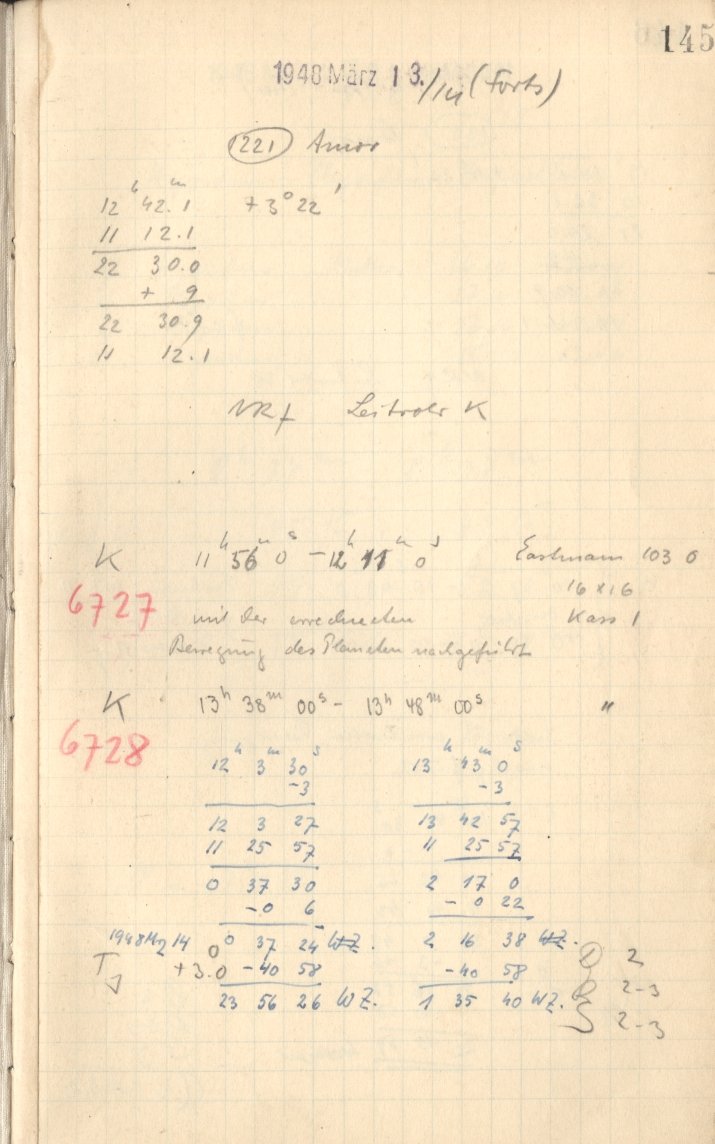 145
1948 März 13./14 (Forts)
1221 Amor
12ʰ 42ᵐ.1 +3° 22'
11 12.1
22 30.0
+ 9
22 30.9
11 12.1
Leitrohr K
K 11ʰ 56ᵐ 0ˢ - 12ʰ 11ᵐ 0ˢ Eastmann 103 O
16 x 16
6727 mit der errechneten Kass 1
Bewegung des Planeten nachgeführt
K 13ʰ 38ᵐ 00ˢ - 13ʰ 48ᵐ 00ˢ "
6728
12ʰ 3ᵐ 30ˢ 13ʰ 43ᵐ 0ˢ
-3 -3
12 3 27 13 42 57
11 25 57 11 25 57
0 37 30 2 17 0
-0 6 - 0 22
1948 Mz 14 0 37 24 WZ. 2 16 38 WZ.
T +3.0 -40 58 -40 58 2
J 23 56 26 WZ. 1 35 40 WZ. 2-3
2-3